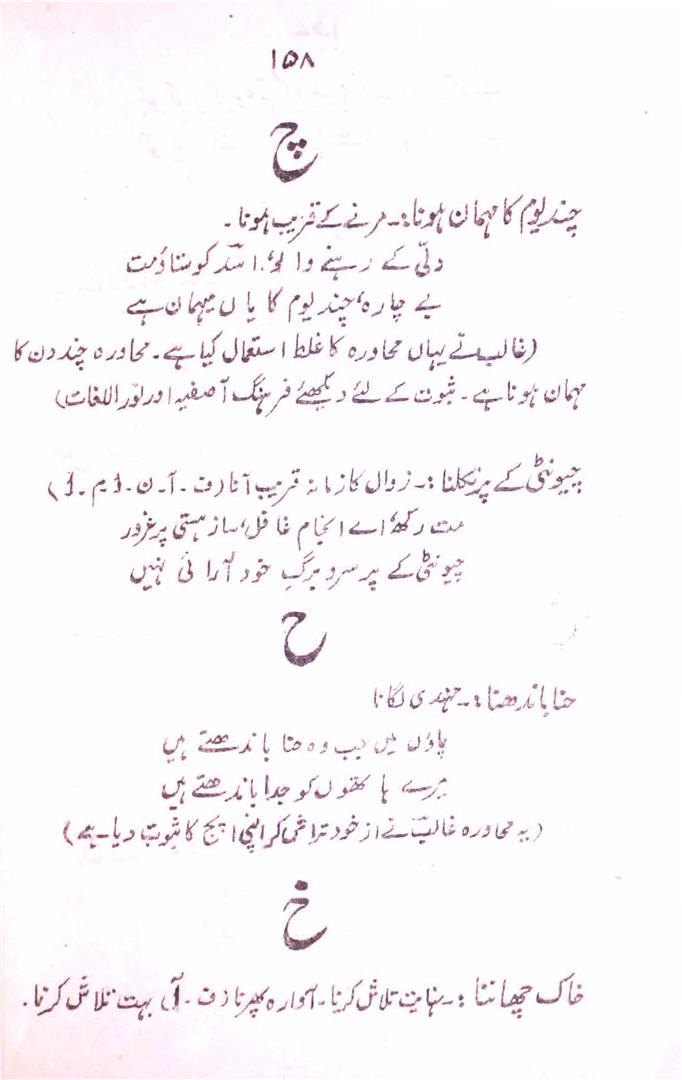 ۱۵۸
چ
چند یوم کا مہمان ہونا:۔ مرنے کے قریب ہونا۔
دلّی کے رہنے والو، اسدؔ کو ستاؤ مت
بے چارہ، چند یوم کا یاں میہمان ہے
(غالبؔ نے یہاں محاورہ کا غلط استعمال کیا ہے۔ محاورہ چند دن کا
مہمان ہونا ہے۔ ثبوت کے لئے دیکھئے فرہنگ آصفیہ اور نور اللغات)
چیونٹی کے پر نکلنا:۔ زوال کا زمانہ قریب آنا (ف۔آ۔ن۔ل م۔ل)
مت رکھ، اے انجام غافل، ساز ہستی پر غرور
چیونٹی کے پر سر و برگِ خود آرائی نہیں
ح
حنا باندھنا:۔ مہندی لگانا
پاؤں میں جب وہ حنا باندھتے ہیں
میرے ہاتھوں کو جدا باندھتے ہیں
(یہ محاورہ غالبؔ نے از خود تراش کر اپنی اپج کا ثبوت دیا ہے)
خ
خاک چھاننا:۔ نہایت تلاش کرنا۔ آوارہ پھرنا (ف۔آ) بہت تلاش کرنا۔